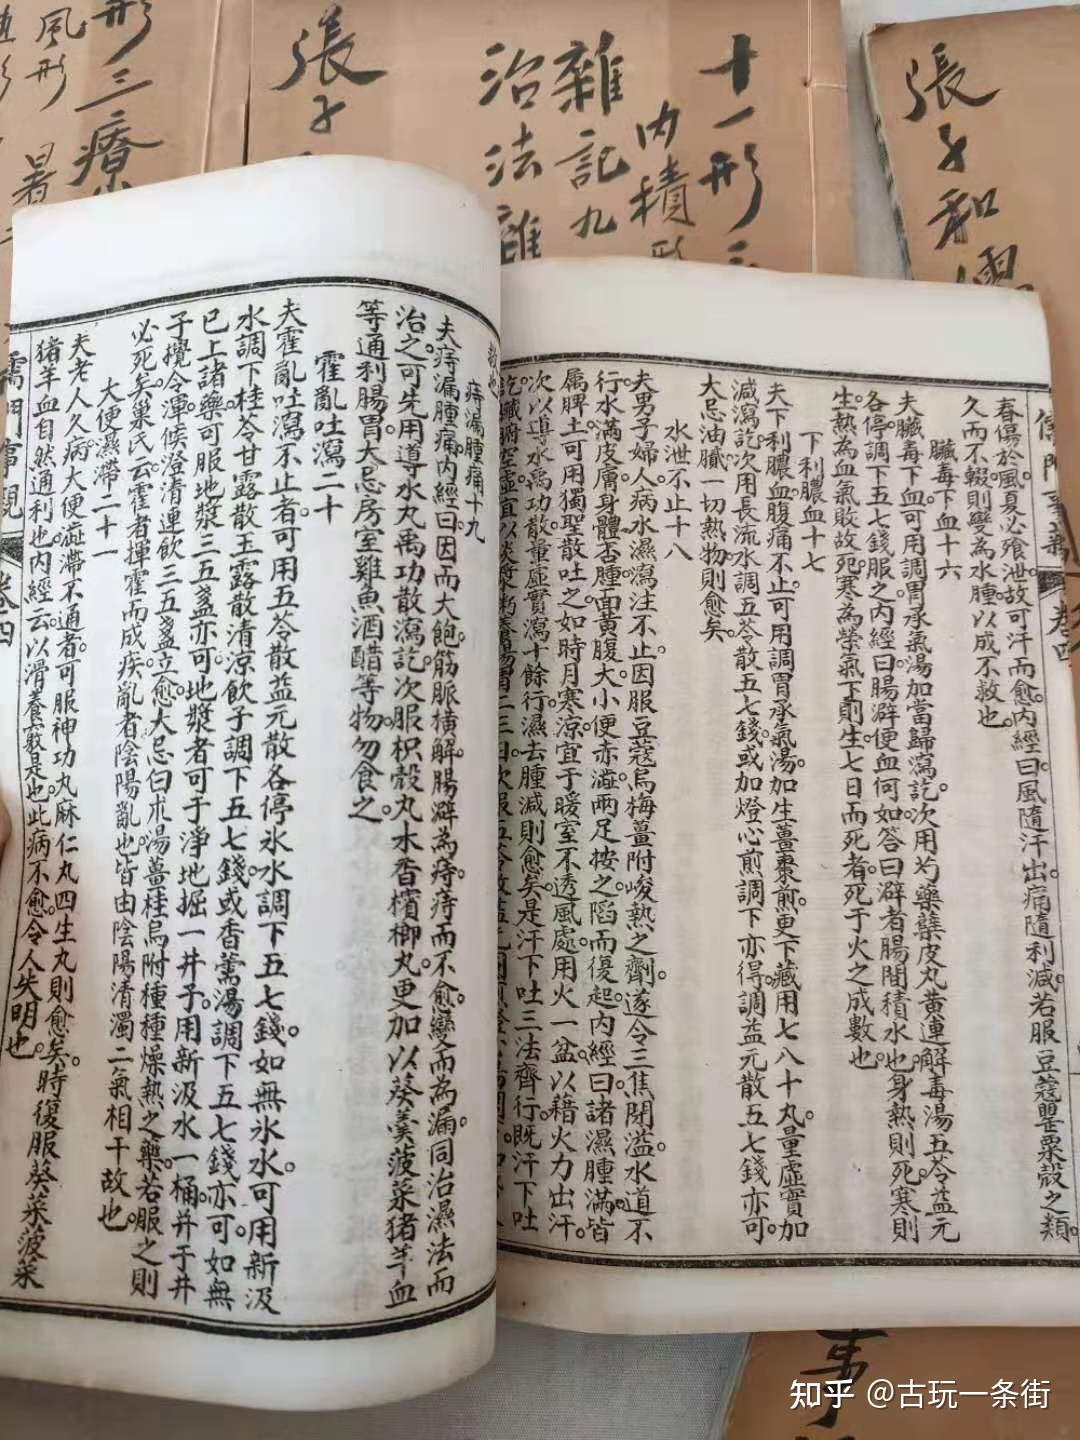 形三療
風形
暑
張子
十一形三
內積形
雜記九
治法雜
張子和儒
儒門事親
卷四
春傷於風夏必飧泄故可汗而愈內經曰風隨汗出痛隨利減若服豆蔻罌粟殼之類
久而不輟則變為水腫以成不救也
臟毒下血十六
夫臟毒下血可用調胃承氣湯加當歸瀉訖次用芍藥蘗皮丸黃連解毒湯五苓益元
各停調下五七錢服之內經曰腸澼便血何如答曰澼者腸間積水也身熱則死寒則
生熱為血氣敗故死寒為榮氣下則生七日而死者死于火之成數也
下利膿血十七
夫下利膿血腹痛不止可用調胃承氣湯加生薑棗煎更下藏用七八十丸量虛實加
減瀉訖次用長流水調五苓散五七錢或加燈心煎調下亦得調益元散五七錢亦可
大忌油膩一切熱物則愈矣
水泄不止十八
夫男子婦人病水濕瀉注不止因服豆蔻烏梅薑附峻熱之劑遂令三焦閉澁水道不
行水滿皮膚身體否腫面黃腹大小便赤澁兩足按之陷而復起內經曰諸濕腫滿皆
屬脾土可用獨聖散吐之如時月寒涼宜于暖室不透風處用火一盆以藉火力出汗
次以導水禹功散量虛實瀉十餘行濕去腫減則愈矣是汗下吐三法齊行既汗下吐
訖臟腑空虛宜以淡漿粥養腸胃二三日次服五苓散益元
痔漏腫痛十九
夫痔漏腫痛內經曰因而大飽筋脈橫解腸澼為痔痔而不愈變而為漏同治濕法而
治之可先用導水丸禹功散瀉訖次服枳殼丸木香檳榔丸更加以葵羹菠菜猪羊血
等通利腸胃大忌房室雞魚酒醋等物勿食之
霍亂吐瀉二十
夫霍亂吐瀉不止者可用五苓散益元散各停冰水調下五七錢如無冰水可用新汲
水調下桂苓甘露散玉露散清涼飲子調下五七錢或香薷湯調下五七錢亦可如無
已上諸藥可服地漿三五盞亦可地漿者可于淨地掘一井子用新汲水一桶并于井
子攪令渾候澄清連飲三五盞立愈大忌白朮湯薑桂烏附種種燥熱之藥若服之則
必死矣巢氏云霍者揮霍而成疾亂者陰陽亂也皆由陰陽清濁二氣相干故也
大便濕滯二十一
夫老人久病大便澁滯不通者可服神功丸麻仁丸四生丸則愈矣時復服葵菜菠菜
猪羊血自然通利也內經云以滑養竅是也此病不愈令人失明也
儒門事親
卷四
事
知乎 @古玩一条街